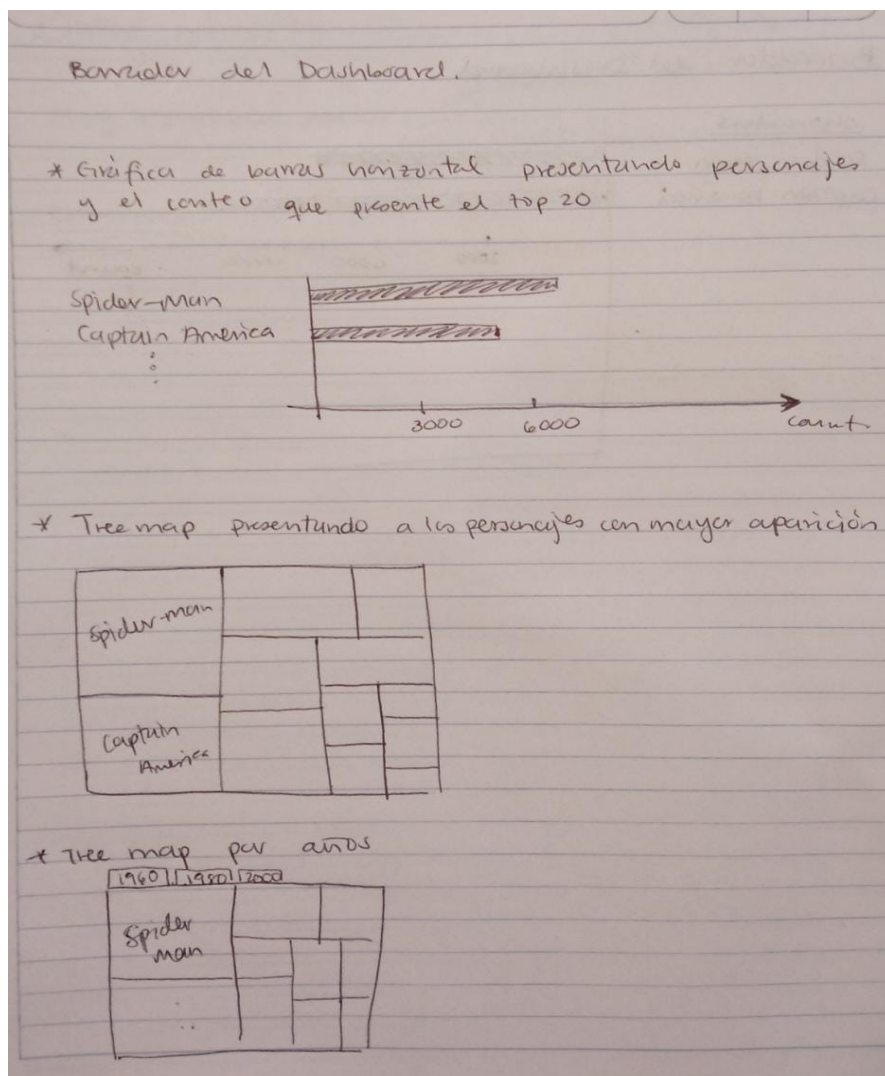 Borrador del Dashboard.
* Gráfica de barras horizontal presentando personajes
y el conteo que presente el top 20.
Spider-Man
Captain America
3000 6000 count.
* Tree map presentando a los personajes con mayor aparición
Spider-man
Captain
America
* Tree map por años
1960 1980 2000
Spider
man